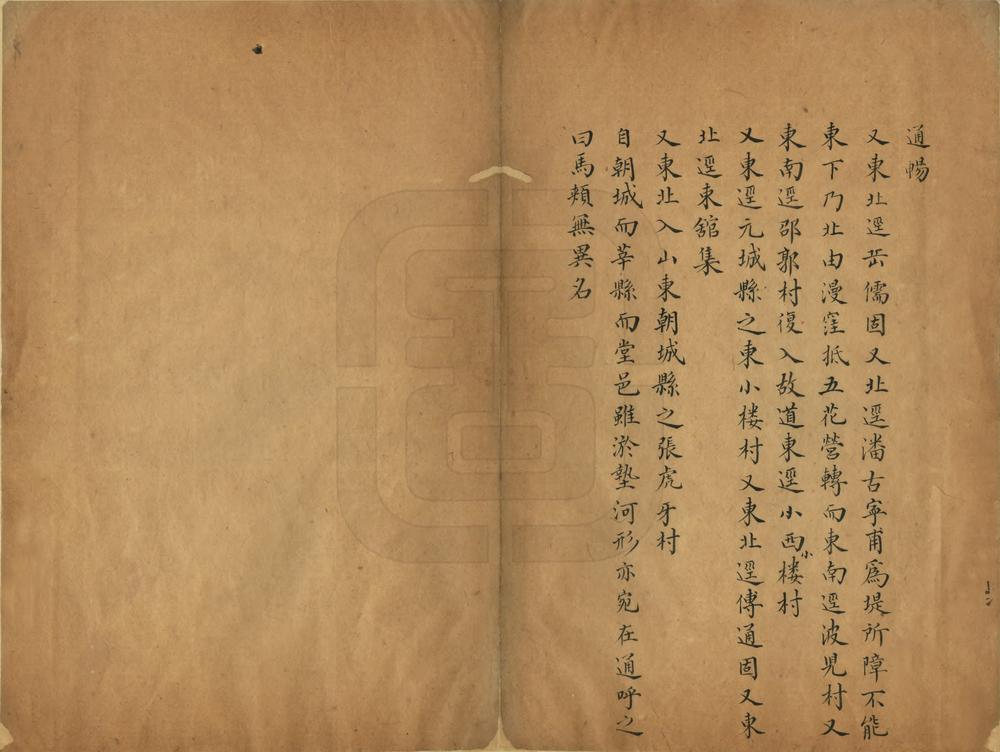 通暢
又東北逕岳儒固又北逕潘古寧甫爲堤所障不能
東下乃北由漫窪抵五花營轉而東南逕波児村又
東南逕邵郭村復入故道東逕小西小楼村
又東逕元城縣之東小楼村又東北逕傅通固又東
北逕東舘集
又東北入山東朝城縣之張虎牙村
自朝城而莘縣而堂邑雖淤墊河形亦宛在通呼之
曰馬頰無異名